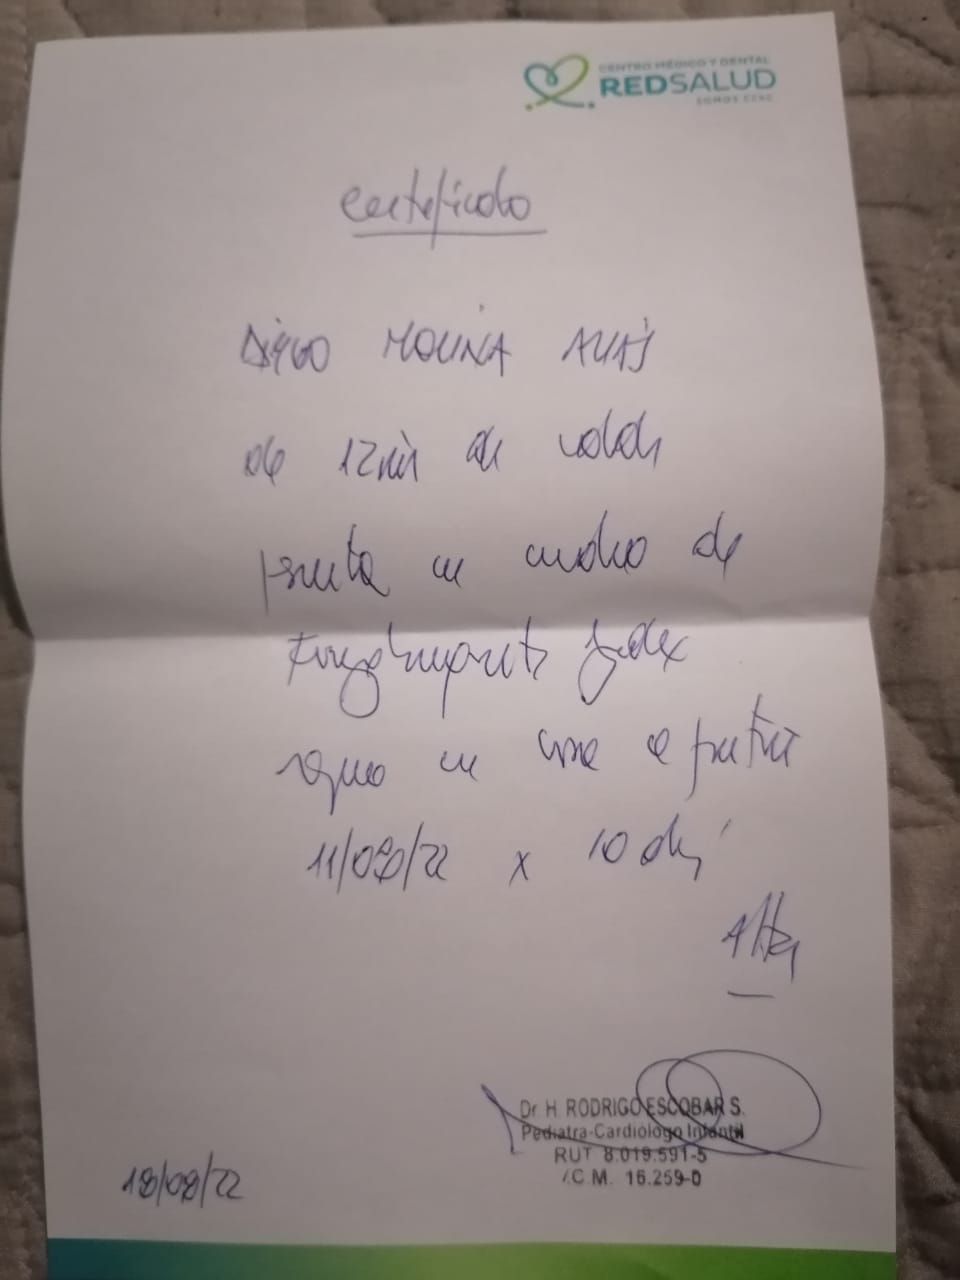 CENTRO MÉDICO Y DENTAL
REDSALUD
SOMOS CChC
Certificado
DIEGO MOLINA
de 12 años de edad
presenta un cuadro de
reposo en casa a partir
11/08/22 x 10 días
Alta
Dr. H. RODRIGO ESCOBAR S.
Pediatra-Cardiólogo Infantil
RUT 8.019.591-5
I.C.M. 16.259-0
18/08/22